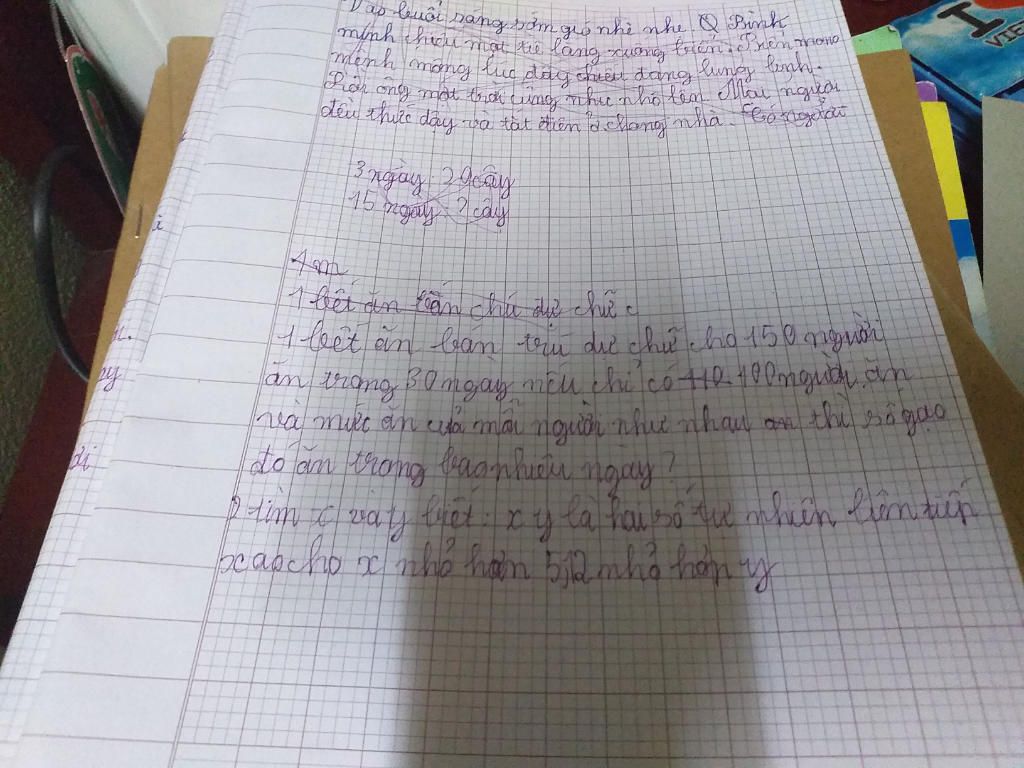 Vào buổi sáng sớm gió nhè nhẹ. Q. Bình
minh chiếu mọi từ làng xuống biển. Trên
mênh mông lúc dậy chiều đang lung linh.
Rồi ông mặt trời cũng như nhô lên. Mọi người
đều thức dậy và tắt điện ở chong nhà.
3 ngày 29 cây
15 ngày ? cây
4 m
1 bết ăn bán chú dự chữ c
1 bết ăn bán trú dự chữ cho 150 người
ăn trong 30 ngày nếu chỉ có 110 100 người ăn
và mức ăn của mỗi người như nhau an thì số gạo
đó ăn trong bao nhiêu ngày?
tìm x và y biết: x y là hai số tự nhiên liên tiếp
xao cho x nhỏ hơn 5,12 nhỏ hơn y
I
VIE